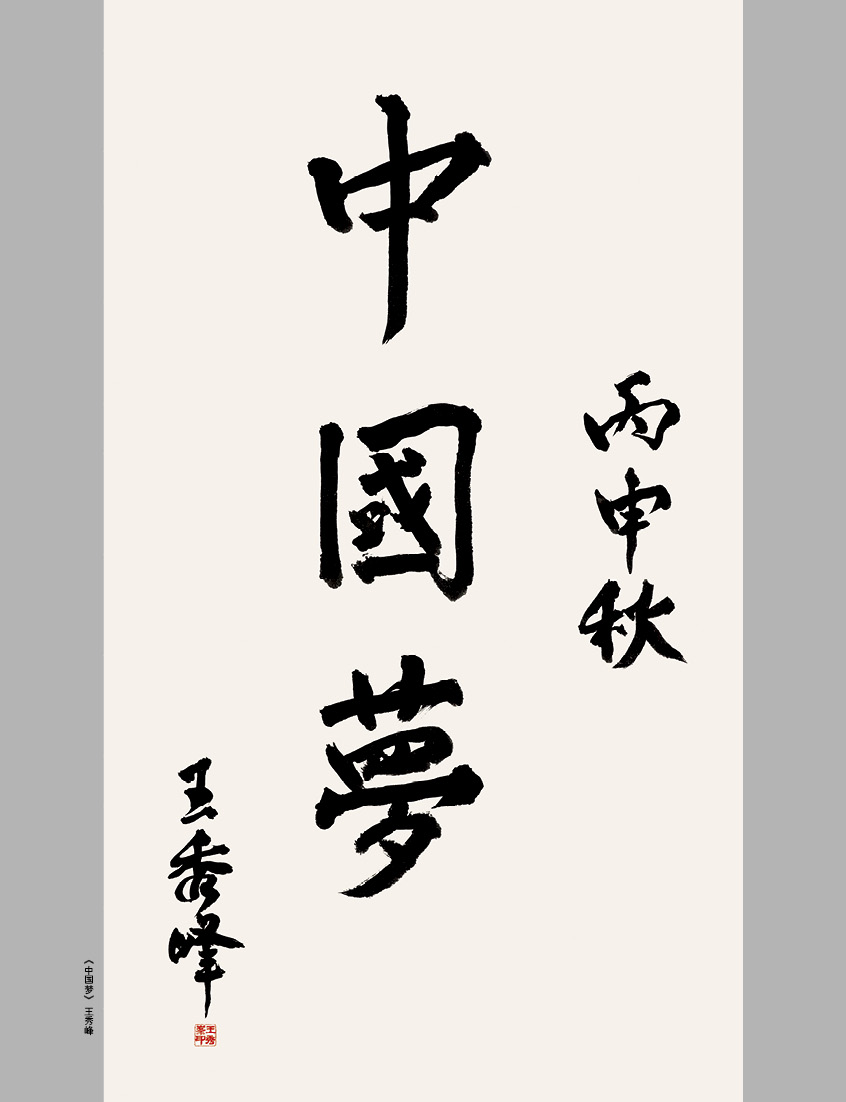 丙申秋
中國夢
王秀峰
王秀峯印
《中国梦》 王秀峰